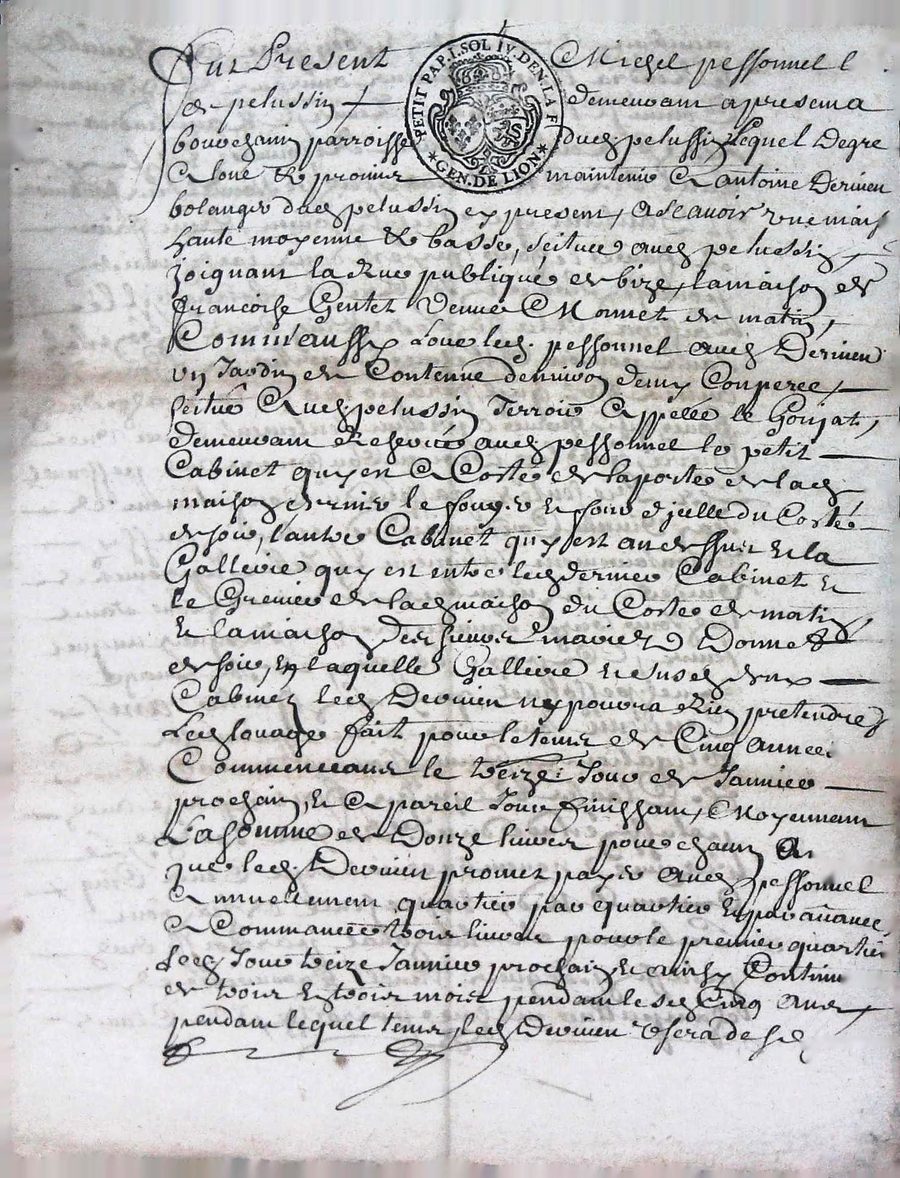 Fut Present Michel pessonnel l
de pelussin demeurant a present a
bourchain parroisse dud pelussin lequel de gre
a loué et promis maintenir a antoine Dervieu
bolanger dud pelussin ex present, ascavoir une mais
haute moyenne et basse, scituée aud pelussin
joignant la Rue publique de bize, la maison de
francoise Gentet veuve Monnet de matin,
Comm'aussy loue led. pessonnel aud Dervieu
un Jardin de Contenue denviron deux Couperee,
scitué aud. pelussin Terroir appellé le Gorjat,
demeurant Reservée aud pessonnel le petit
Cabinet quy est a Costé de la porte de lad
maison
de soir, l'autre Cabinet quy est au dessus et la
Gallerie quy est entre led dernier Cabinet et
le Grenier de lad maison du Costé de matin,
et la maison des hoirs
de soir, en laquelle Gallerie et susd deux
Cabinet led Dervieu ne poura Rien pretendre,
Led louage fait pour le tems de Cinq année
Commencant le treize Jour de Janvier
prochain, et a pareil Jour finissant, Moyennant
La somme de Douze livres pour chacun an
que led. Dervieu promet payer aud pessonnel
annuellement quartier par quartier et par avance,
a Commancer trois livres pour le premier quartier
led Jour treize Janvier prochain et ainsy Continu
de trois et trois mois pendant lesd Cinq ans,
pendant lequel tems led Dervieu usera desd
PETIT PAP. I. SOL IV. DEN. LA F
GEN. DE LION